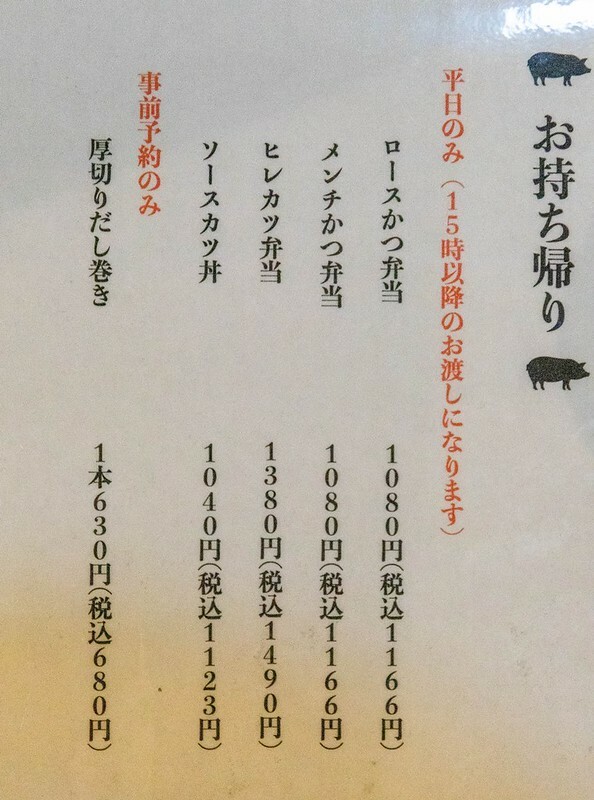 お持ち帰り
平日のみ（15時以降のお渡しになります）
ロースかつ弁当 1080円（税込1166円）
メンチかつ弁当 1080円（税込1166円）
ヒレカツ弁当 1380円（税込1490円）
ソースカツ丼 1040円（税込1123円）
事前予約のみ
厚切りだし巻き 1本630円（税込680円）